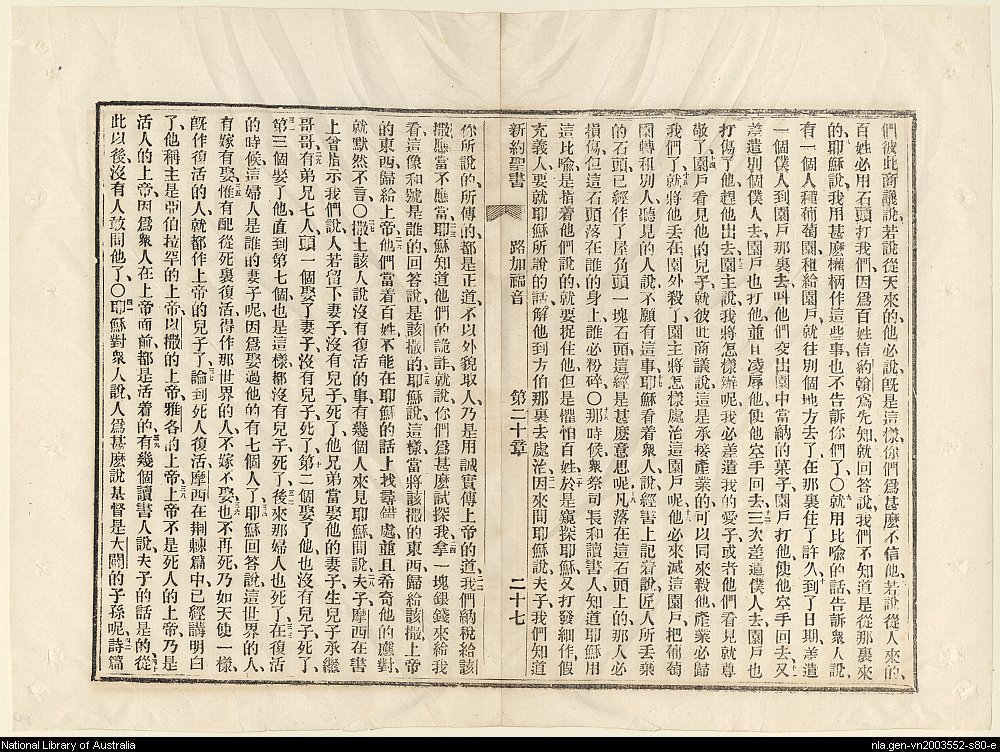 們彼此商議說、若說從天來的、他必說、旣是這樣、你們爲甚麼不信他、若說從人來的、
百姓必用石頭打我們、因爲百姓信約翰爲先知、就回答說、我們不知道是從那裏來
的、耶穌說、我用甚麼權柄作這些事、也不告訴你們了、〇就用比喻的話告訴衆人說、
有一個人種葡萄園、租給園戶、就往別個地方去了、在那裏住了許久、到了日期、差遣
一個僕人到園戶那裏去、叫他們交出園中當納的菓子、園戶打他、使他空手回去、又
差遣別個僕人去、園戶也打他、並且凌辱他、使他空手回去、三次差遣僕人去、園戶也
打傷了他、趕他出去、園主說、我將怎樣辦呢、我必差遣我的愛子、或者他們看見就尊
敬了、園戶看見他的兒子、就彼此商議說、這是承接產業的、可以同來殺他、產業必歸
我們了、就將他丟在園外殺了、園主將怎樣處治這園戶呢、他必來滅這園戶、把葡萄
園轉租別人、聽見的人說、不願有這事、耶穌看着衆人說、經書上記着說、匠人所丟棄
的石頭、已經作了屋角頭一塊石頭、這經是甚麼意思呢、凡落在這石頭上的、那人必
損傷、但這石頭落在誰的身上、誰必粉碎、〇那時候、衆祭司長和讀書人、知道耶穌用
這比喻是指着他們說的、就要捉住他、但是懼怕百姓、於是窺探耶穌、又打發細作、假
充義人、要就耶穌所說的話、解他到方伯那裏去處治、因來問耶穌說、夫子、我們知道
新約聖書 路加福音 第二十章 二十七
你所說的所傳的都是正道、不以外貌取人、乃是用誠實傳上帝的道、我們納稅給該
撒、應當不應當、耶穌知道他們的詭詐、就說、你們爲甚麼試探我、拿一塊銀錢來給我
看、這像和號是誰的、回答說、是該撒的、耶穌說、這樣當將該撒的東西歸給該撒、上帝
的東西歸給上帝、他們當着百姓、不能在耶穌的話上找尋錯處、並且希奇他的應對、
就默然不言、〇撒土該人說沒有復活的事、有幾個人來見耶穌、問說、夫子、摩西在書
上曾指示我們說、人若留下妻子、沒有兒子死了、他兄弟當娶他的妻子、生兒子承繼
哥哥、有弟兄七人、頭一個娶了妻子、沒有兒子、死了、第二個娶了他、也沒有兒子、死了、
第三個娶了他、直到第七個、也是這樣、都沒有兒子、死了、後來那婦人也死了、在復活
的時候、這婦人是誰的妻子呢、因爲娶過他的有七個人了、耶穌回答說、這世界的人、
有嫁有娶、惟有配從死裏復活得作那世界的人、不嫁不娶、也不再死、乃如天使一樣、
旣作復活的人、就都作上帝的兒子了、論到死人復活、摩西在荆棘篇中已經講明白
了、他稱主是亞伯拉罕的上帝、以撒的上帝、雅各的上帝、上帝不是死人的上帝、乃是
活人的上帝、因爲衆人在上帝面前都是活着的、有幾個讀書人說、夫子的話是的、從
此以後、沒有人敢問他了、〇耶穌對衆人說、人爲甚麼說基督是大闢的子孫呢、詩篇
National Library of Australia
nla.gen-vn2003552-s80-e